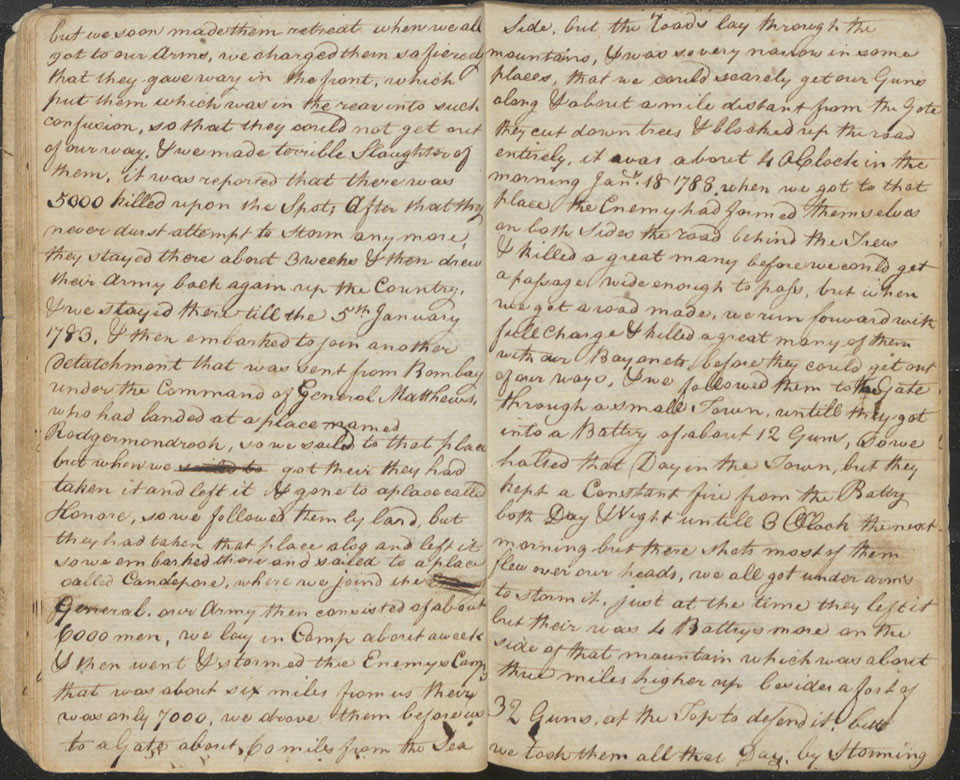 but we soon made them retreat when we all
got to our Arms, we charged them so fiercely
that they gave way in the front, which
put them which was in the rear into such
confusion, so that they could not get out
of our way. & we made terrible Slaughter of
them, it was reported that there was
5000 killed upon the Spot; After that they
never durst attempt to Storm any more,
they stayed there about 3 weeks & then drew
their Army back again up the Country.
& we stayed there till the 5th January
1783, & then embarked to join another
detatchment that was sent from Bombay
under the Command of General Matthews,
who had landed at a place named
Rodgermondrook, so we saild to that place
but when we got their they had
taken it and left it & gone to a place called
Honore, so we followed them by land, but
they had taken that place also and left it
so we embarked there and sailed to a place
called Candepore, where we found the
General. our Army then consisted of about
6000 men, we lay in Camp about a week
& then went & stormed the Enemys Camp
that was about six miles from us their
was only 7000, we drove them before us
to a Gate about 60 miles from the Sea
Side, but the roads lay through the
mountains, & was so very narrow in some
places, that we could scarely get our Guns
along & about a mile distant from the Gate
they cut down trees & blocked up the road
entirely, it was about 4 OClock in the
morning Jany. 18 1783. when we got to that
place the Enemy had formed themselves
on both sides the road behind the Trees
& killed a great many before we could get
a passage wide enough to pass, but when
we got a road made, we run forward with
full Charge & killed a great many of them
with our Bayonets before they could get out
of our ways, & we followed them to the Gate
through a small Town, untill they got
into a Battry of about 12 Guns, so we
halted that Day in the Town, but they
kept a Constant fire from the Battry
both Day & Night untill 3 OClock the next
morning but there shots most of them
flew over our heads, we all got under arms
to storm it. just at the time they left it
but their was 4 Battrys more on the
side of that mountain which was about
three miles higher up besides a fort of
32 Guns, at the Top to defend it. but
we took them all that Day, by Storming